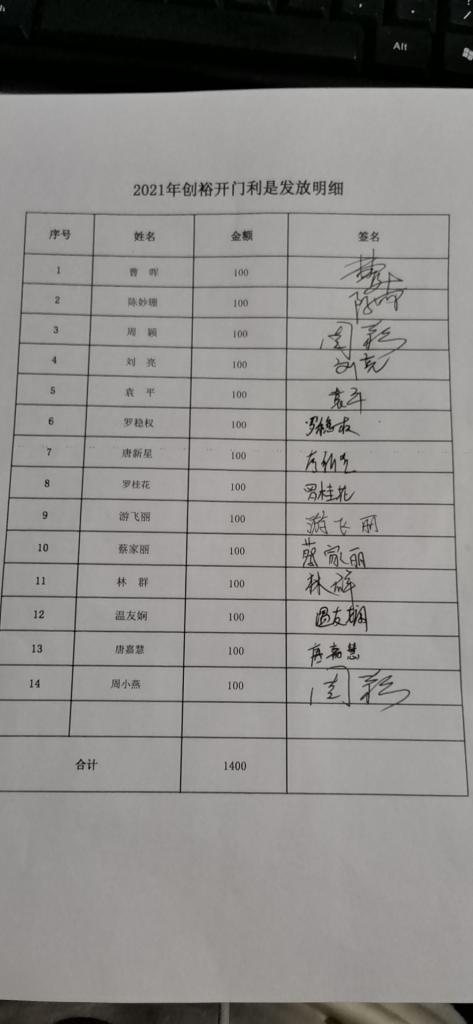 Alt
2021年创裕开门利是发放明细
序号 姓名 金额 签名
1 曹晖 100
2 陈妙珊 100
3 周颖 100 周颖
4 刘亮 100 刘亮
5 袁平 100 袁平
6 罗稳权 100 罗稳权
7 唐新星 100
8 罗桂花 100 罗桂花
9 游飞丽 100 游飞丽
10 蔡家丽 100 蔡家丽
11 林群 100 林群
12 温友娴 100 温友娴
13 唐嘉慧 100 唐嘉慧
14 周小燕 100 周颖
合计 1400